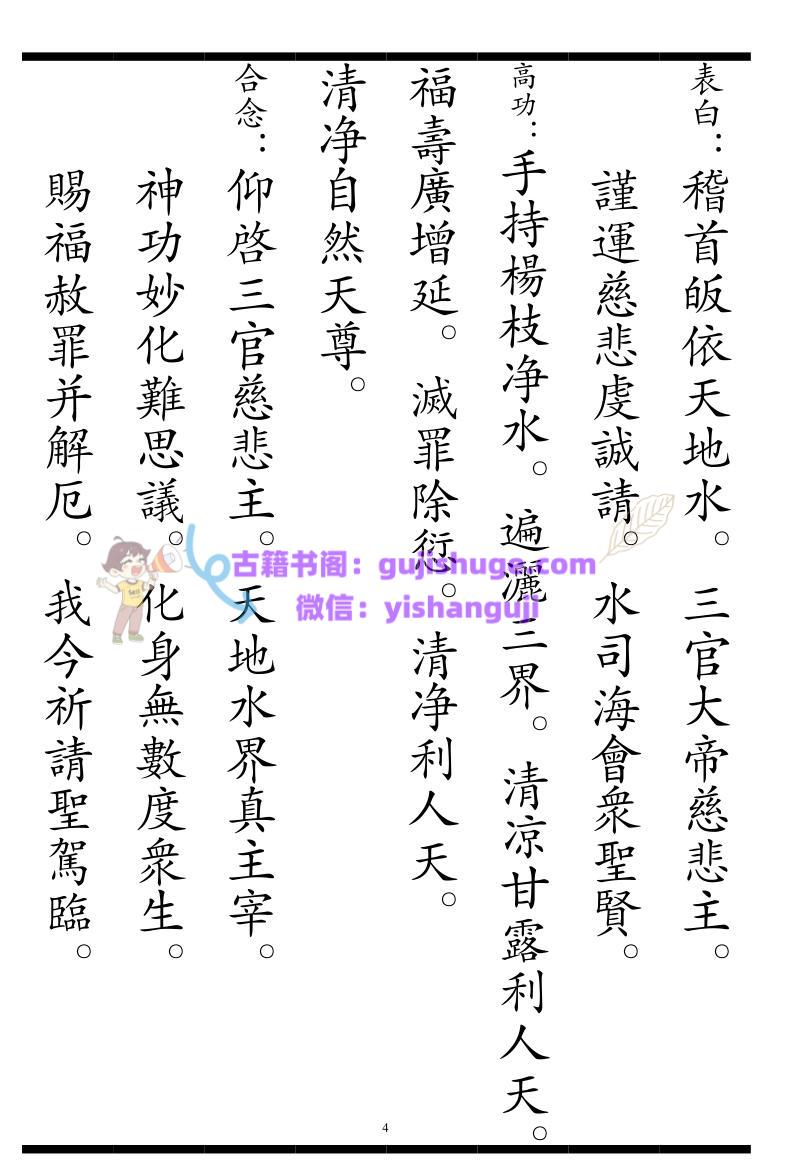 表白：稽首皈依天地水。三官大帝慈悲主。
謹運慈悲虔誠請。水司海會衆聖賢。
高功：手持楊枝净水。遍灑三界。清凉甘露利人天。
福壽廣增延。滅罪除愆。清净利人天。
清净自然天尊。
合念：仰啓三官慈悲主。天地水界真主宰。
神功妙化難思議。化身無數度衆生。
賜福赦罪并解厄。我今祈請聖駕臨。
古籍书阁：gujishuge.com
微信：yishanguji
4